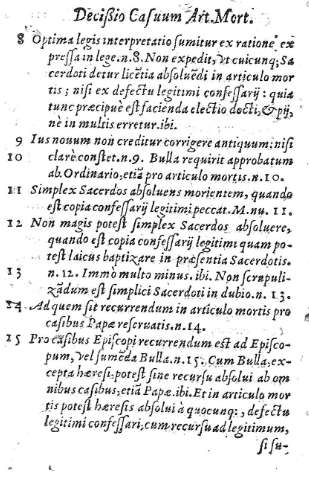 Decißio Casuum Art. Mort.
8 Optima legis interpretatio sumitur ex ratione ex
pressa in lege. n. 8. Non expedit, vt cuicunq; Sa
cerdoti detur licẽtia absoluẽdi in articulo mor
tis; nisi ex defectu legitimi confessarij: quia
tunc præcipuè est facienda electio docti, & pij,
nè in multis erretur. ibi.
9 Ius nouum non creditur corrigere antiquum: nisi
clarè constet. n. 9. Bulla requirit approbatum
10 ab. Ordinario, etiã pro articulo mortis. n. 10.
11 Simplex Sacerdos absoluens morientem, quando
est copia confessarij legitimi peccat. M. nu. 11.
12 Non magis potest simplex Sacerdos absoluere,
quando est copia confessarij legitimi quam po-
test laicus baptizare in præsentia Sacerdotis.
13 n. 12. Immo multo minus. ibi. Non scrupuli-
zãdum est simplici Sacerdoti in dubio. n. 13.
14 Ad quem sit recurrendum in articulo mortis pro
casibus Papæ reseruatis. n. 14.
15 Pro casibus Episcopi recurrendum est ad Episco-
pum, vel sumẽda Bulla. n. 15. Cum Bulla, ex-
cepta hæresi, potest sine recursu absolui ab om
nibus casibus, etiã Papæ. ibi. Et in articulo mor
tis potest hæresis absolui à quocunq;, defectu
legitimi confessari, cum recursu ad legitimum,
si su-